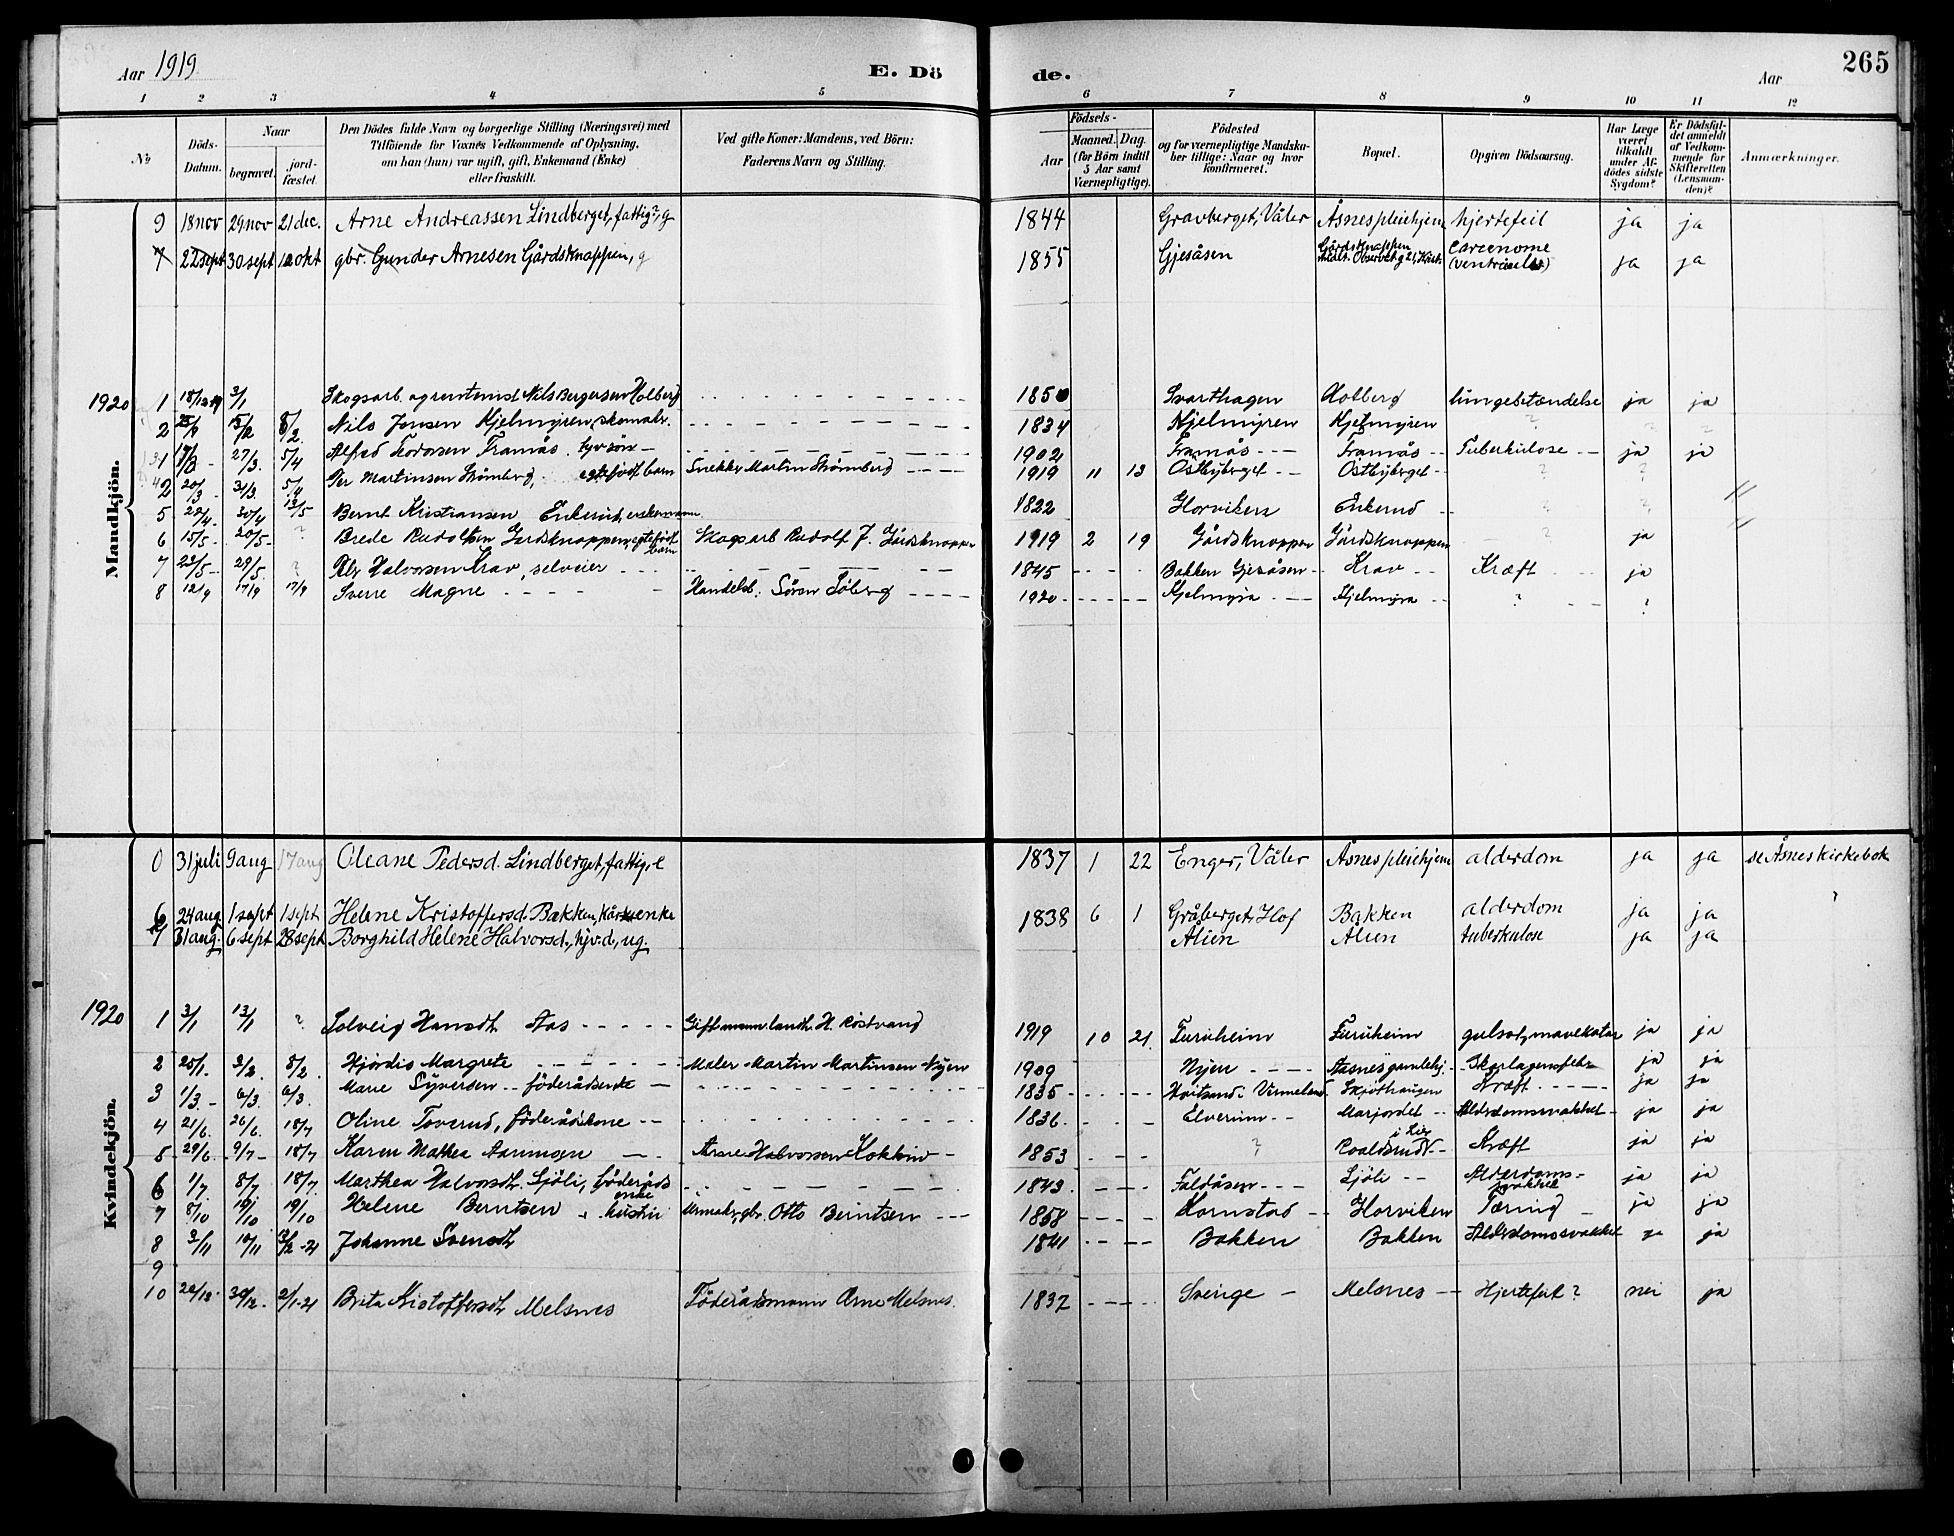 Aar 1919 E. Dö de. Aar 265
1 2 3 4 5 6 7 8 9 10 11 12
No Döds-Datum. Naar begravet. jord-fæstet. Den Dödes fulde Navn og borgerlige Stilling (Næringsvei) med Tilföiende for Voxnes Vedkommende af Oplysning, om han (hun) var ugift, gift, Enkemand (Enke) eller fraskilt. Ved gifte Koner: Mandens, ved Börn: Faderens Navn og Stilling. Födsels- Aar Maaned. Dag. (for Börn indtil 5 Aar samt Værnepligtige). Födested og for værnepligtige Mandskaber tillige: Naar og hvor konfirmeret. Bopæl. Opgiven Dödsaarsag. Har Læge været tilkaldt under Afdödes sidste Sygdom? Er Dödsfaldet anmeldt af Vedkommende for Skifteretten (Lensmanden)? Anmærkninger.
Mandkjön.
9 18 nov 29 nov 21 dec. Arne Andreassen Lindberget, fattig, g 1844 Gravberget, Våler Åsnes pleiehjem hjertefeil ja ja
7 22 sept 30 sept 12 okt gbr. Gunder Arnesen Gårdsknappen, g 1855 Gjesåsen Gårdsknappen ja ja
1920 1 18/12 19 3/1 Skogsarb. Nils Bergersen Holberg 1850 Svarthagen Holberg lungebetændelse ja ja
2 Nils Jonsen Kjelmyren, skomakr. 1834 Kjelmyren Kjelmyren ? ?
27/3 5/4 Alfred Framås 1902 Framås Framås Tuberkulose ja ja
20/3 31/3 5/4 Per Martinsen Strömberg, egtefödt barn Snekker Martin Strömberg 1919 11 13 Östbyberget Östbyberget ? ?
5 22/4 30/4 13/5 Bernt Kristiansen Enkerud, enkemann 1822 Horviken Enkerud ? ? "
6 15/5 20/5 ? Brede Rudolfsen Gårdsknappen, egtefödt barn Skogsarb Rudolf J. Gårdsknappen 1919 2 19 Gårdsknappen Gårdsknappen ? ja "
7 22/5 29/5 ? Halvorsen Krav, selveier 1845 Bakken Gjesåsen Krav Kræft ja
8 12/9 17/9 17/9 Sverre Magne Handelsb. Sören Söberg 1920 Kjelmyra Kjelmyra ? ?
Kvindekjön.
0 31 juli 9 aug 17 aug Oleane Pedersd. Lindberget, fattig, e 1837 1 22 Enger, Våler Åsnes pleiehjem alderdom ja ja se Åsnes kirkebok
6 24 aug 1 sept 1 sept Helene Kristoffersd. Bakken, kårenke 1838 6 1 Gråberget, Hof Bakken alderdom ja ja "
7 31 aug. 6 sept 28 sept Borghild Helene Halvorsd., hjv.d., ug. Alien Alien tuberkulose ja ja
1920 1 3/1 13/1 ? Solveig Hansdt. Aas Gift mann landh. H. Röstvand 1919 10 21 Furuheim Furuheim gulsot, mavekatar ja ja
2 25/1 3/2 8/2 Hjördis Margrete Maler Martin Martinsen Nyen 1909 Nyen Aasnes gamlehj. Skarlagensfeber ja ja
3 1/3 6/3 6/3 Marie Syversen föderådsenke 1835 Vermeland Skjöthaugen Kræft ja ja
4 21/6 26/6 18/7 Oline Toverud, föderådskone 1836 Elverum Marjordet Alderdomssvakhet ja ja
5 29/6 9/7 18/7 Karen Mathea Arne Halvorsen Kokkin 1853 ? Roaldsrud i Lier Kræft ja ja
6 1/7 8/7 18/7 Marthea Halvorsdt. Sjöli, föderåds enke 1843 Faldåsen Sjöli Alderdoms- svakhet ja ja
7 8/10 19/10 19/10 Helene Berntsen hustru gbr. Otto Berntsen 1858 Kornstad Horviken Tæring ja ja
8 3/11 10/11 3/2-21 Johanne Svensdt 1841 Bakken Bakken Alderdomssvakhet ja ja
9
10 22/12 30/12 2/1-21 Brita Kristoffersdt Melsnes Föderådsmann Arne Melsnes. 1837 Sverige Melsnes Hjertefeil? nei ja